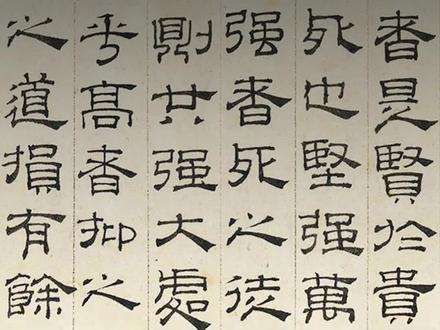 者是賢於貴
死也堅强萬
强者死之徒
則共强大處
乎高者抑之
之道損有餘